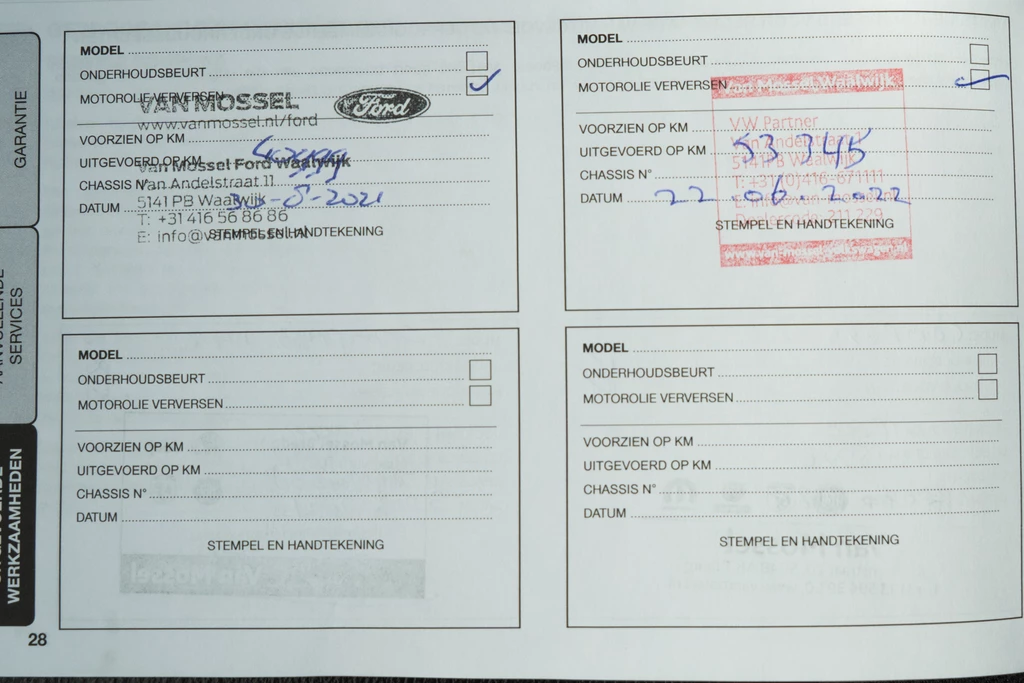 GARANTIE
SERVICES
WERKZAAMHEDEN
MODEL
ONDERHOUDSBEURT
MOTOROLIE VERVERSEN
VAN MOSSEL
Ford
www.vanmossel.nl/ford
VOORZIEN OP KM
UITGEVOERD OP KM
Van Mossel Ford Waalwijk
CHASSIS N°
Van Andelstraat 11
5141 PB Waalwijk
DATUM 30-8-2021
T: +31 416 56 86 86
E: info@vanmossel.nl
STEMPEL EN HANDTEKENING
MODEL
ONDERHOUDSBEURT
MOTOROLIE VERVERSEN
Van Mossel Waalwijk
VOORZIEN OP KM
VW Partner
Van Andelstraat
UITGEVOERD OP KM 53 345
5141 PB Waalwijk
CHASSIS N°
T: +31(0)416-671111
DATUM 22.06.2022
Dealercode: 211 229
STEMPEL EN HANDTEKENING
MODEL
ONDERHOUDSBEURT
MOTOROLIE VERVERSEN
VOORZIEN OP KM
UITGEVOERD OP KM
CHASSIS N°
DATUM
STEMPEL EN HANDTEKENING
MODEL
ONDERHOUDSBEURT
MOTOROLIE VERVERSEN
VOORZIEN OP KM
UITGEVOERD OP KM
CHASSIS N°
DATUM
STEMPEL EN HANDTEKENING
28